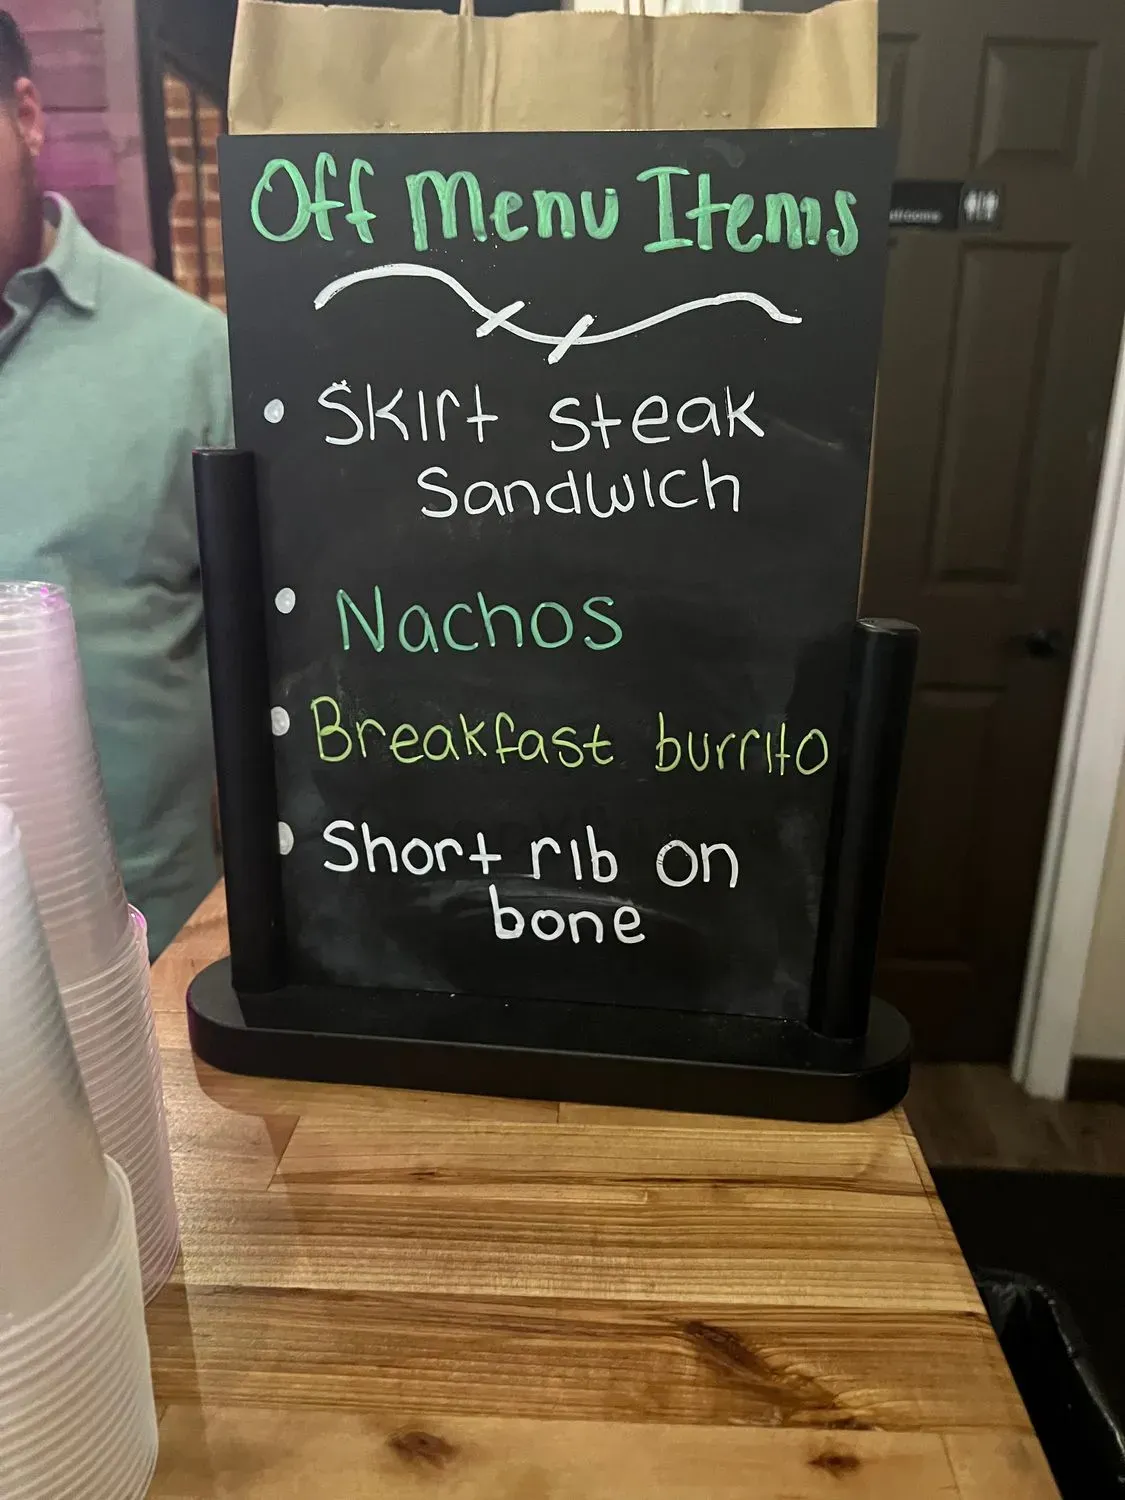 Off Menu Items
• Skirt Steak
Sandwich
• Nachos
• Breakfast burrito
• Short rib on
bone